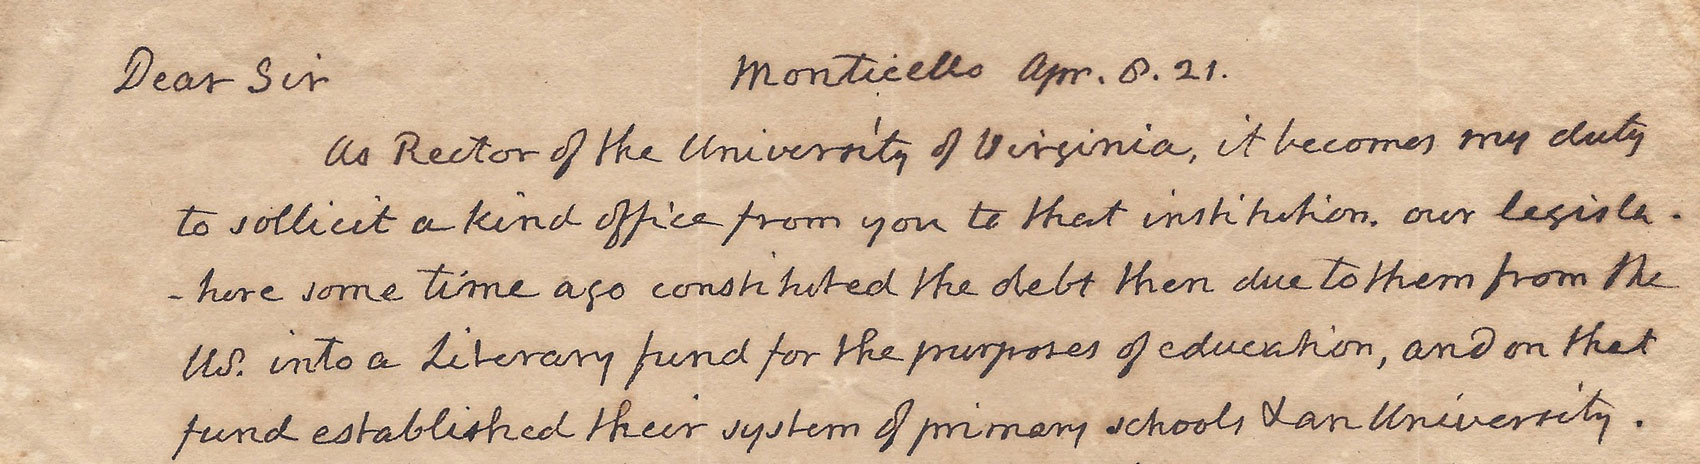 Dear Sir Monticello Apr. 8. 21.
As Rector of the University of Virginia, it becomes my duty
to sollicit a kind office from you to that institution. our legisla-
-ture some time ago constituted the debt then due to them from the
US. into a Literary fund for the purposes of education, and on that
fund established their system of primary schools & an University.